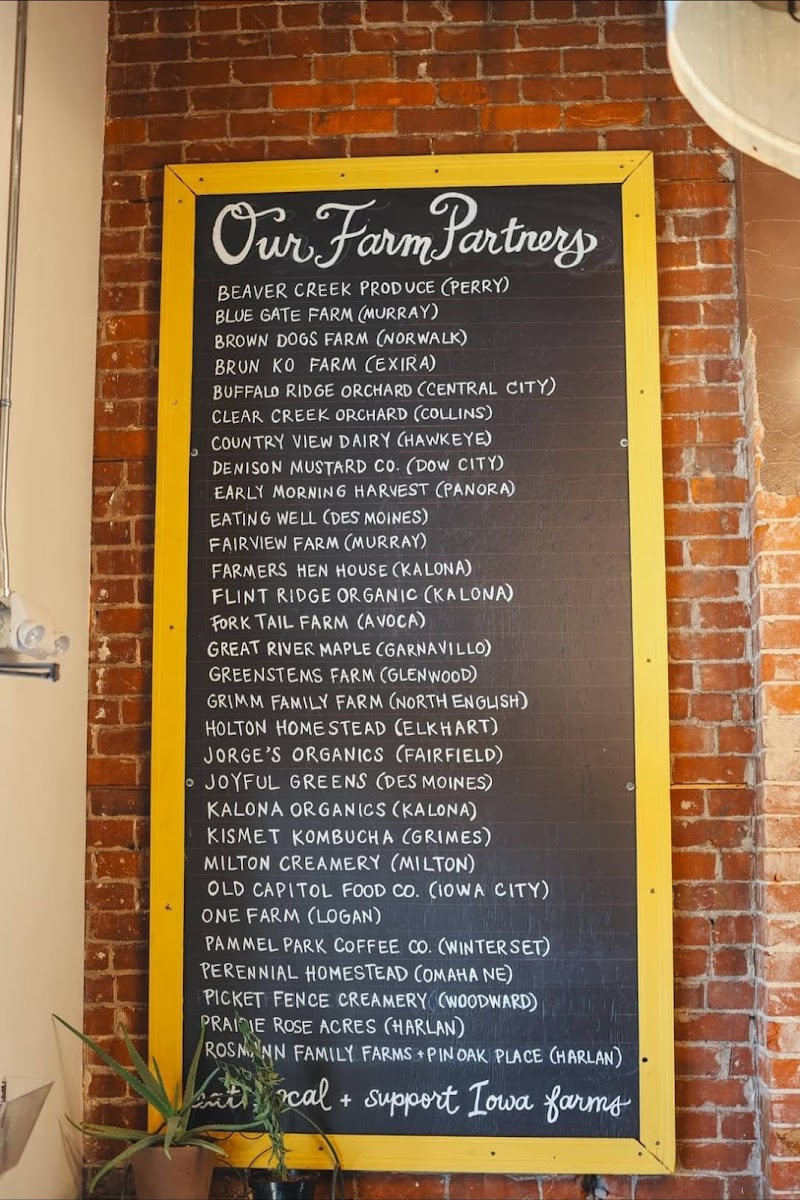 Our Farm Partners
BEAVER CREEK PRODUCE (PERRY)
BLUE GATE FARM (MURRAY)
BROWN DOGS FARM (NORWALK)
BRUN KO FARM (EXIRA)
BUFFALO RIDGE ORCHARD (CENTRAL CITY)
CLEAR CREEK ORCHARD (COLLINS)
COUNTRY VIEW DAIRY (HAWKEYE)
DENISON MUSTARD CO. (DOW CITY)
EARLY MORNING HARVEST (PANORA)
EATING WELL (DES MOINES)
FAIRVIEW FARM (MURRAY)
FARMERS HEN HOUSE (KALONA)
FLINT RIDGE ORGANIC (KALONA)
FORK TAIL FARM (AVOCA)
GREAT RIVER MAPLE (GARNAVILLO)
GREENSTEMS FARM (GLENWOOD)
GRIMM FAMILY FARM (NORTH ENGLISH)
HOLTON HOMESTEAD (ELKHART)
JORGE'S ORGANICS (FAIRFIELD)
JOYFUL GREENS (DES MOINES)
KALONA ORGANICS (KALONA)
KISMET KOMBUCHA (GRIMES)
MILTON CREAMERY (MILTON)
OLD CAPITOL FOOD CO. (IOWA CITY)
ONE FARM (LOGAN)
PAMMEL PARK COFFEE CO. (WINTERSET)
PERENNIAL HOMESTEAD (OMAHA NE)
PICKET FENCE CREAMERY (WOODWARD)
PRAIRIE ROSE ACRES (HARLAN)
ROSMANN FAMILY FARMS + PIN OAK PLACE (HARLAN)
eat local + support Iowa farms